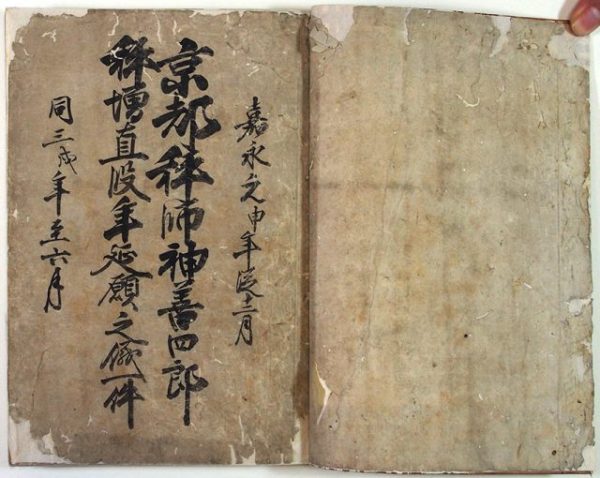 嘉永元申年従十二月
京都秤師神善四郎
秤増直段年延願之儀一件
同三戌年至六月